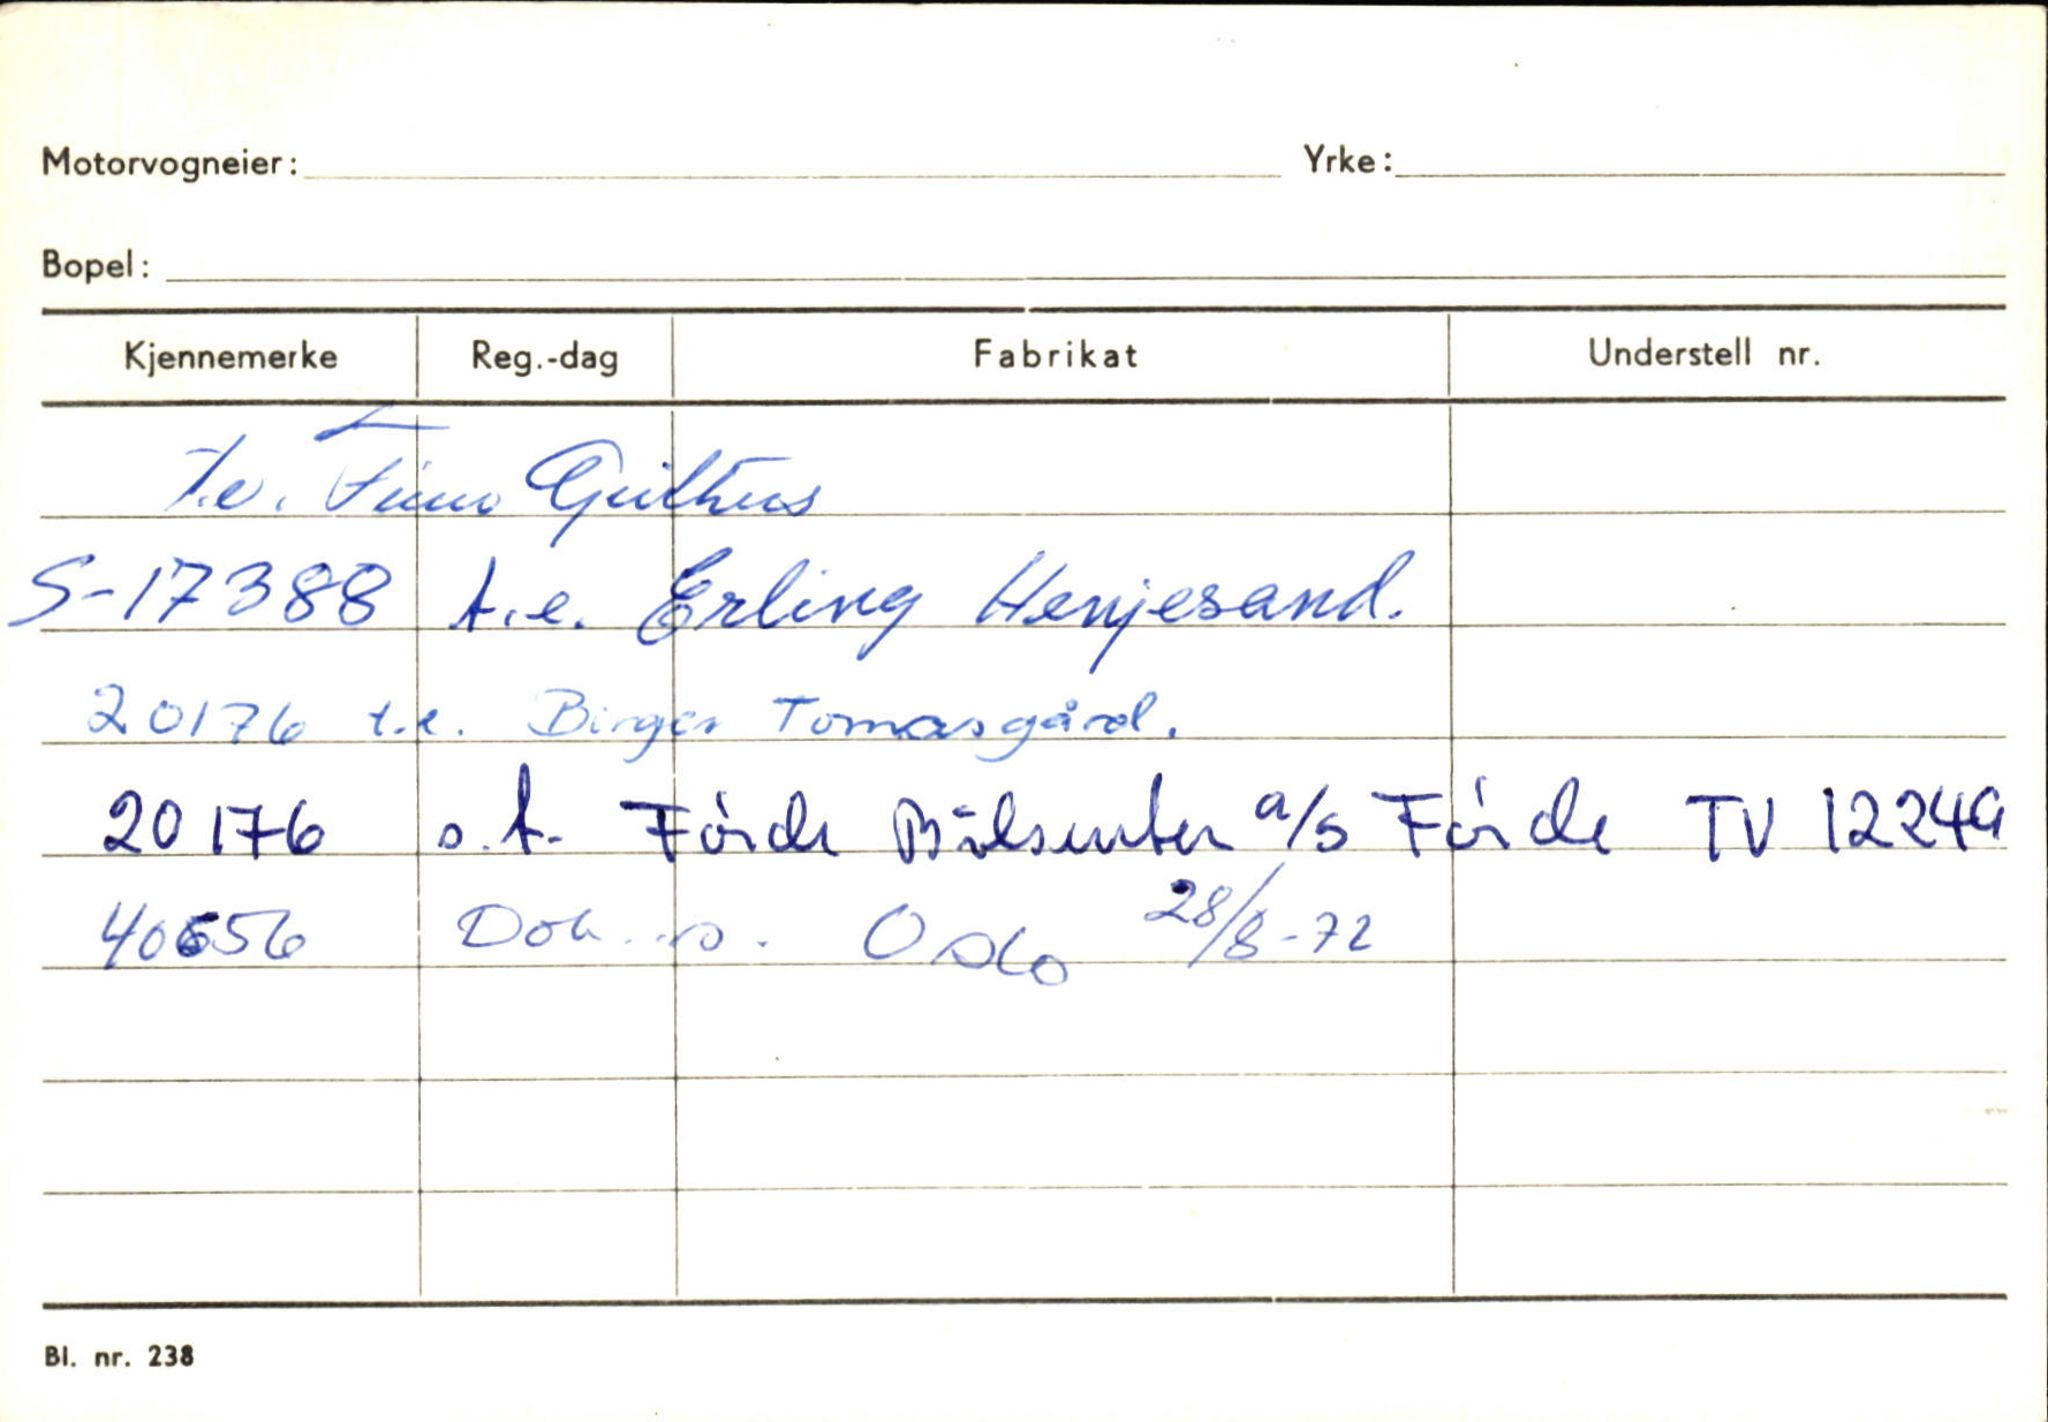 Motorvogneier: Yrke:
Bopel:
Kjennemerke Reg.-dag Fabrikat Understell nr.
T.e. Finn
S-17388 t.e. Erling Henjesand.
20176 t.e. Birger Tomasgård.
20176 s.t. Förde Bilsenter a/s Förde TV 12249
Oslo 28/8-72
Bl. nr. 238